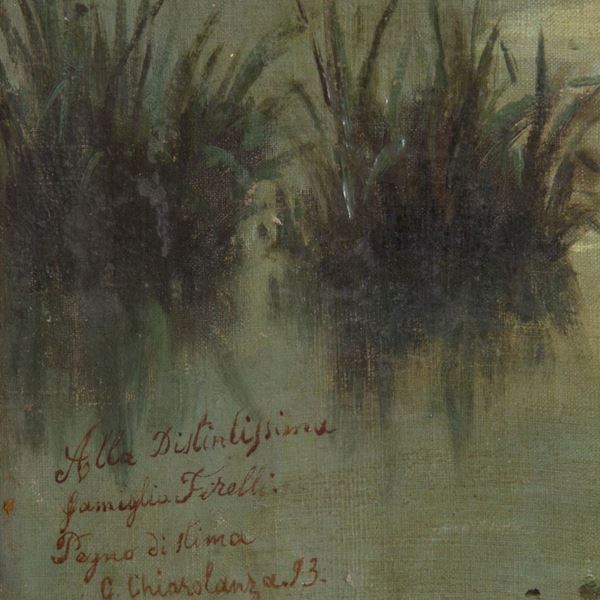 Alla Distintissima
famiglia Firelli.
Pegno di stima
C. Chiarolanza. 93.